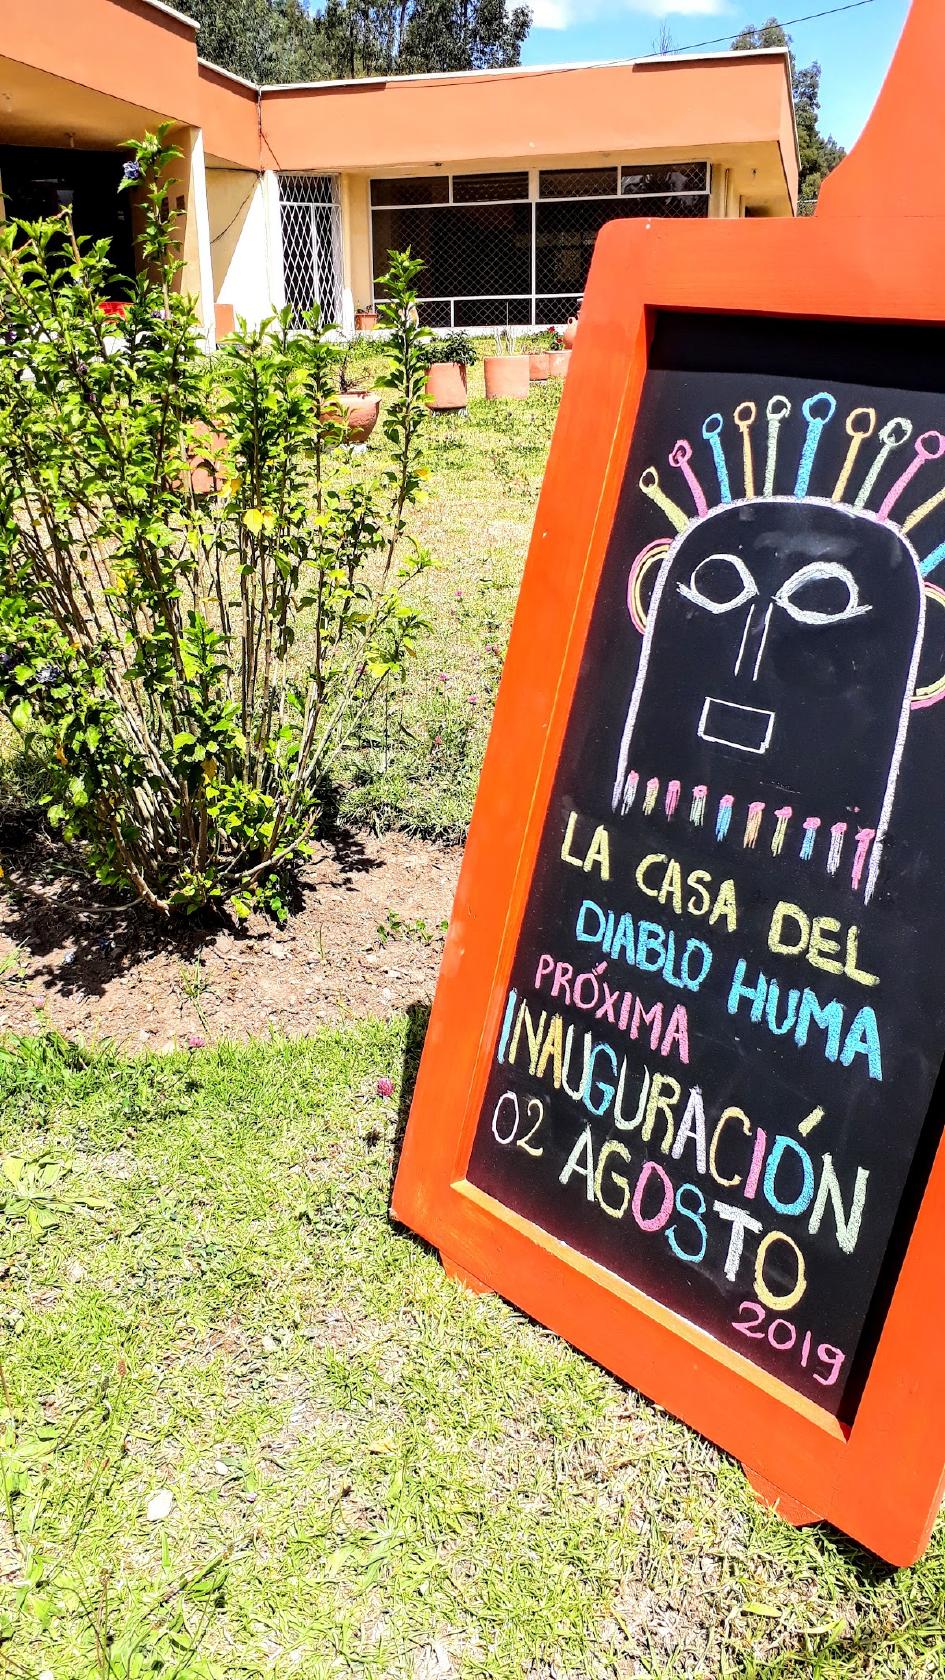 LA CASA DEL
DIABLO HUMA
PRÓXIMA
INAUGURACIÓN
02 AGOSTO
2019